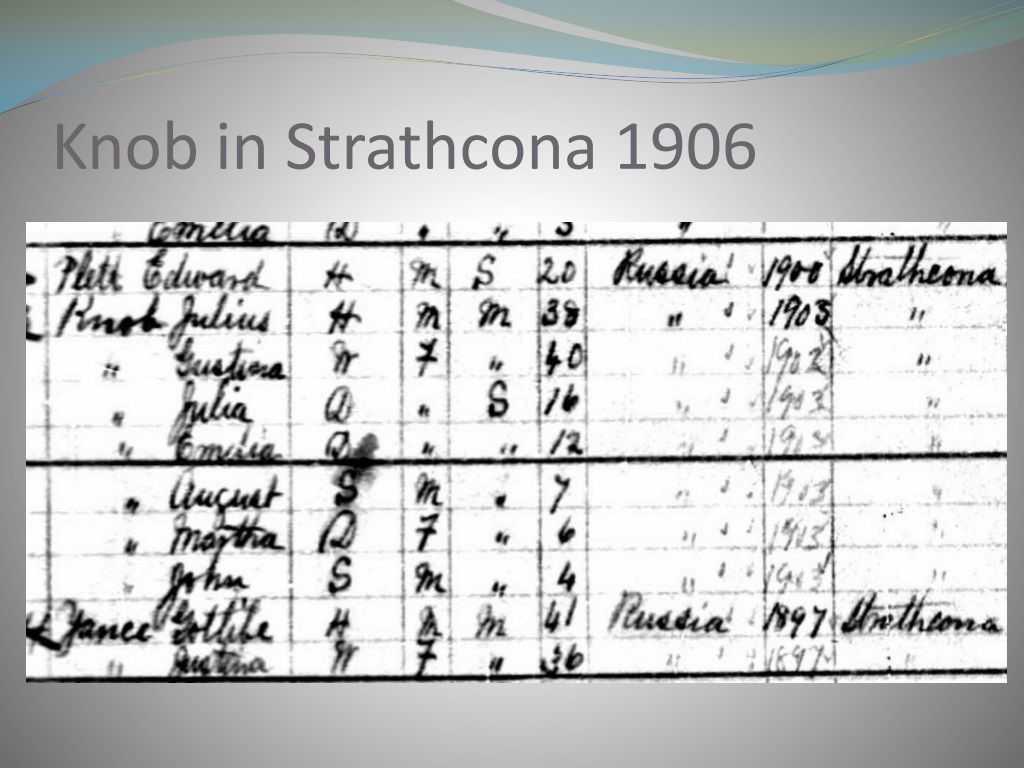 Knob in Strathcona 1906
" Emilia D " " 3 "
Plett Edward H M S 20 Russia 1900 Strathcona
Knob Julius H M M 38 " 1903 "
" Justina W F " 40 " 1902 "
" Julia D " S 16 " 1903 "
" Emilia D " " 12 " 1903 "
" August S M " 7 " 1903 "
" Martha D F " 6 " 1903 "
" John S M " 4 " 1903 "
Gottlibe H M M 41 Russia 1897 Strathcona
" Justina W F " 36 " 1897 "